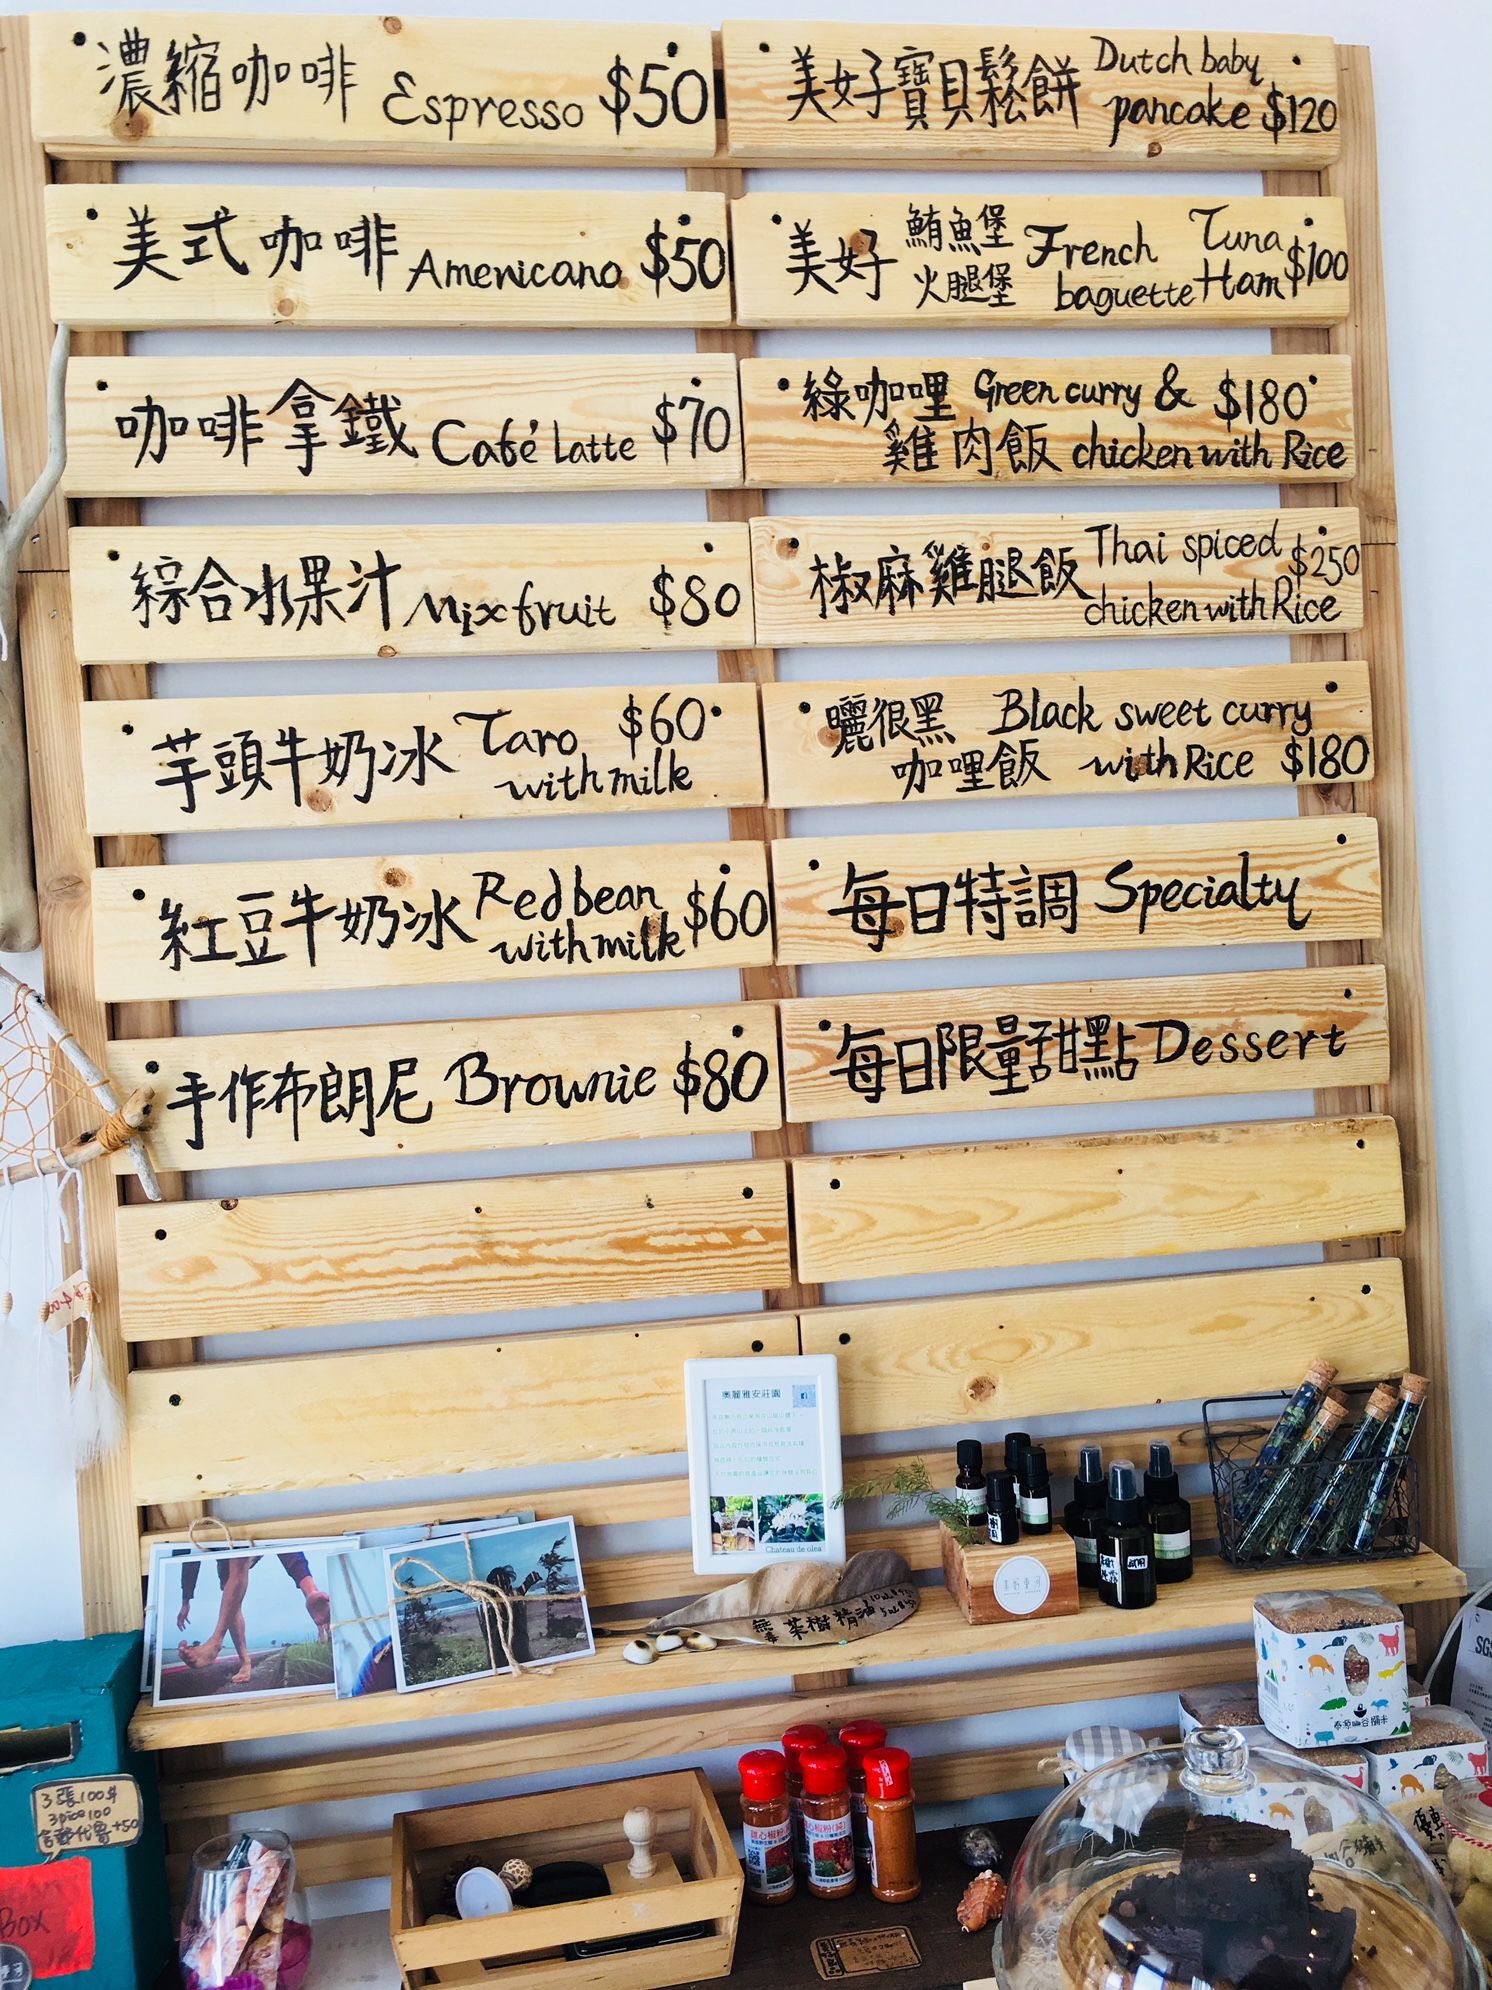 濃縮咖啡 Espresso $50
美式咖啡 Americano $50
咖啡拿鐵 Café Latte $70
綜合水果汁 Mix fruit $80
芋頭牛奶冰 Taro $60
with milk
紅豆牛奶冰 Red bean $60
with milk
手作布朗尼 Brownie $80
美好寶貝鬆餅 Dutch baby
pancake $120
美好 鮪魚堡 French Tuna $100
火腿堡 baguette Ham
綠咖哩 Green curry & $180
雞肉飯 chicken with Rice
椒麻雞腿飯 Thai spiced $250
chicken with Rice
曬很黑 Black sweet curry
咖哩飯 with Rice $180
每日特調 Specialty
每日限量甜點 Dessert
奧麗雅安莊園
Chateau de olea
茶樹精油
3張100元
3pice100
含郵代寄+50
Box